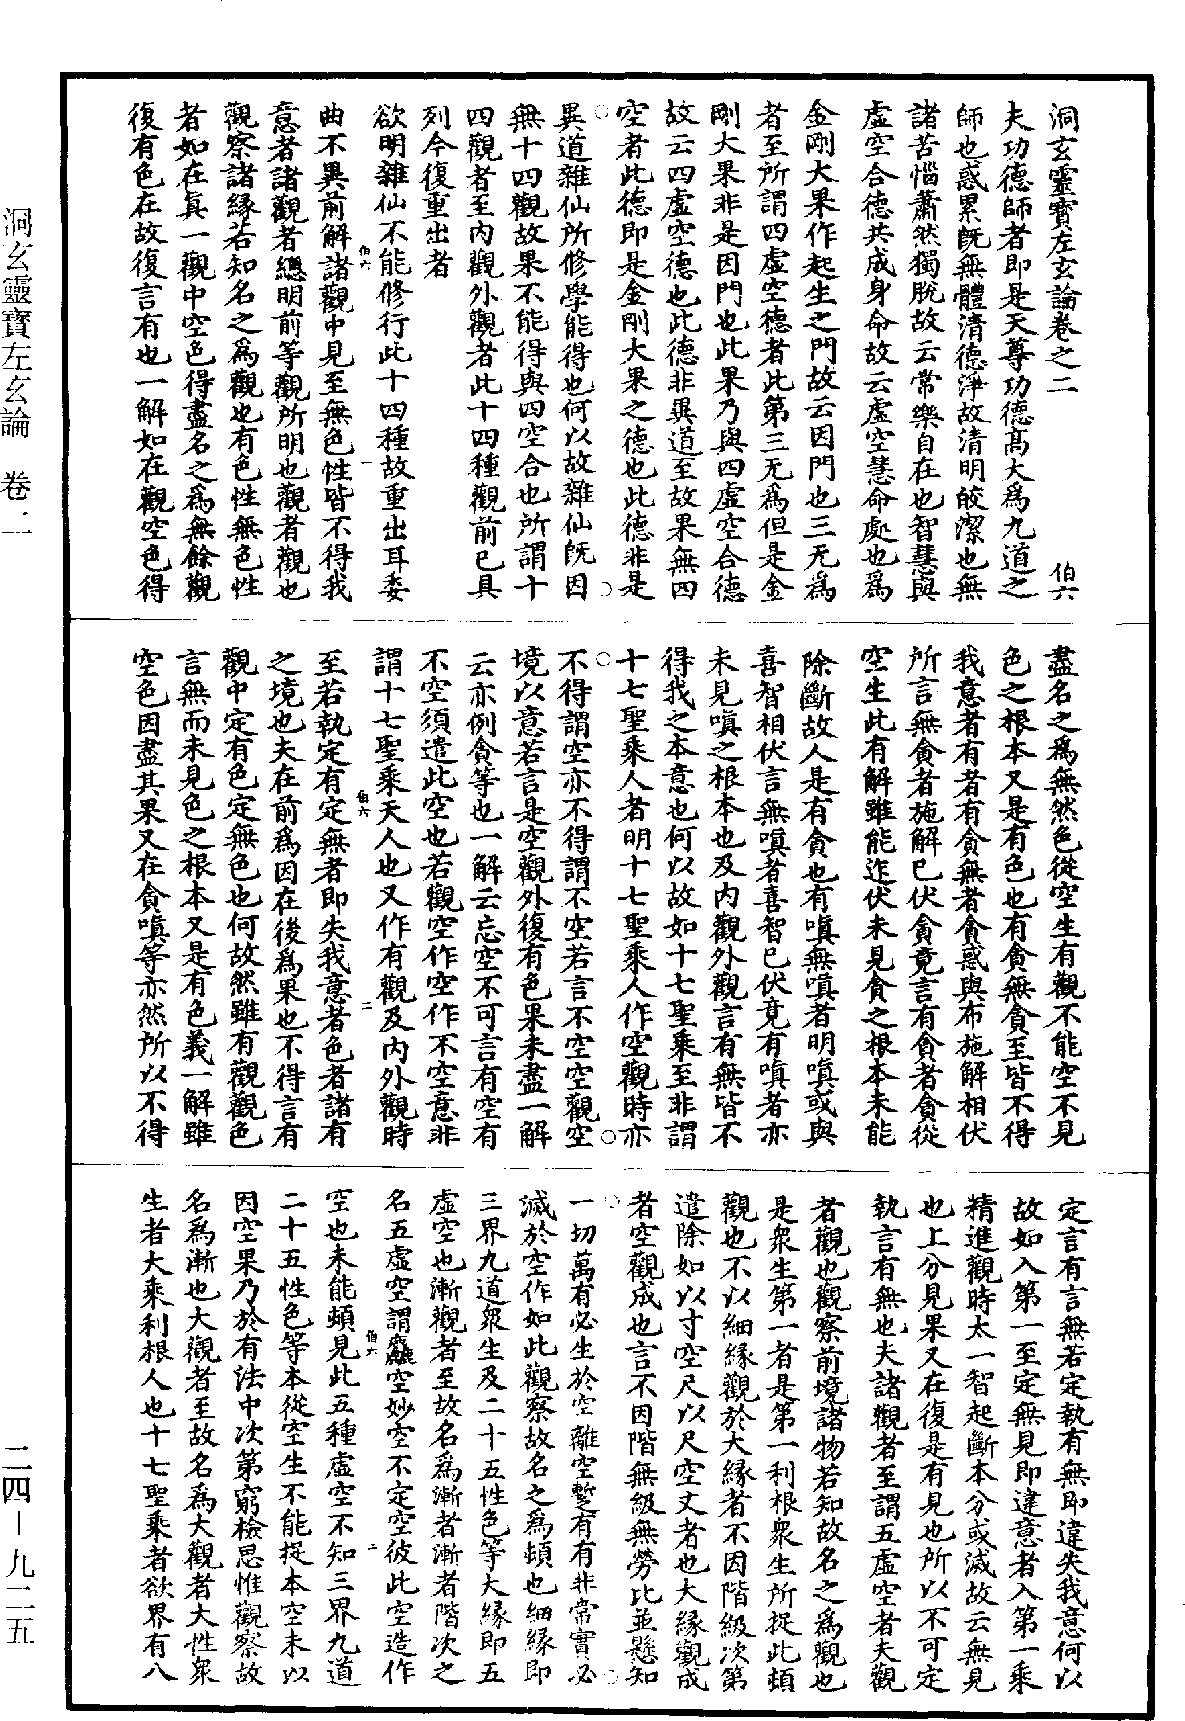 洞玄靈寶左玄論卷之二　伯六
夫功德師者即是天尊功德高大爲九道之
師也惑累旣無體清德淨故清明皎潔也無
諸苦惱蕭然獨脫故云常樂自在也智慧與
虛空合德共成身命故云虛空慧命處也爲
金剛大果作起生之門故云因門也三无爲
者至所謂四虛空德者此第三无爲但是金
剛大果非是因門也此果乃與四虛空合德
故云四虛空德也此德非異道至故果無四
空者此德即是金剛大果之德也此德非是
異道雜仙所修學能得也何以故雜仙旣因
無十四觀故果不能得與四空合也所謂十
四觀者至內觀外觀者此十四種觀前已具
列今復重出者
欲明雜仙不能修行此十四種故重出耳委
伯六　一
曲不異前解諸觀中見至無色性皆不得我
意者諸觀者緫明前等觀所明也觀者觀也
觀察諸緣若知名之爲觀也有色性無色性
者如在真一觀中空色得盡名之爲無餘觀
復有色在故復言有也一解如在觀空色得
盡名之爲無然色從空生有觀不能空不見
色之根本又是有色也有貪無貪至皆不得
我意者有者有貪無者貪惑與布施解相伏
所言無貪者施解已伏貪竟言有貪者貪從
空生此有解雖能迮伏未見貪之根本未能
除斷故人是有貪也有嗔無嗔者明嗔或與
喜智相伏言無嗔者喜智已伏竟有嗔者亦
未見嗔之根本也及內觀外觀言有無皆不
得我之本意也何以故如十七聖乘至非謂
十七聖乘人者明十七聖乘人作空觀時亦
不得謂空亦不得謂不空若言不空空觀空
境以意若言是空觀外復有色果未盡一解
云亦例貪等也一解云忘空不可言有空有
不空須遣此空也若觀空作空作不空意非
謂十七聖乘天人也又作有觀及內外觀時
伯六　二
至若執定有定無者即失我意者色者諸有
之境也夫在前爲因在後爲果也不得言有
觀中定有色定無色也何故然雖有觀觀色
言無而未見色之根本又是有色義一解雖
空色因盡其果又在貪嗔等亦然所以不得
定言有言無若定執有無即違失我意何以
故如入第一至定無見即違意者入第一乘
精進觀時太一智起斷本分或滅故云無見
也上分見果又在復是有見也所以不可定
執言有無也夫諸觀者至謂五虛空者夫觀
者觀也觀察前境諸物若知故名之爲觀也
是衆生第一者是第一利根衆生所捉此頓
觀也不以細緣觀於大緣者不因階級次第
遣除如以寸空尺以尺空丈者也大緣觀成
者空觀成也言不因階無級無勞比並懸知
一切萬有必生於空離空蹔有有非常實必
滅於空作如此觀察故名之爲頓也細緣即
三界九道衆生及二十五性色等大緣即五
虛空也漸觀者至故名爲漸者漸者階次之
名五虛空謂麤空妙空不定空彼此空造作
伯六　二
空也未能頓見此五種虛空不知三界九道
二十五性色等本從空生不能捉本空未以
因空果乃於有法中次第窮檢思惟觀察故
名爲漸也大觀者至故名爲大觀者大性衆
生者大乘利根人也十七聖乘者欲界有八
洞玄靈寶左玄論　卷二
二四—九二五